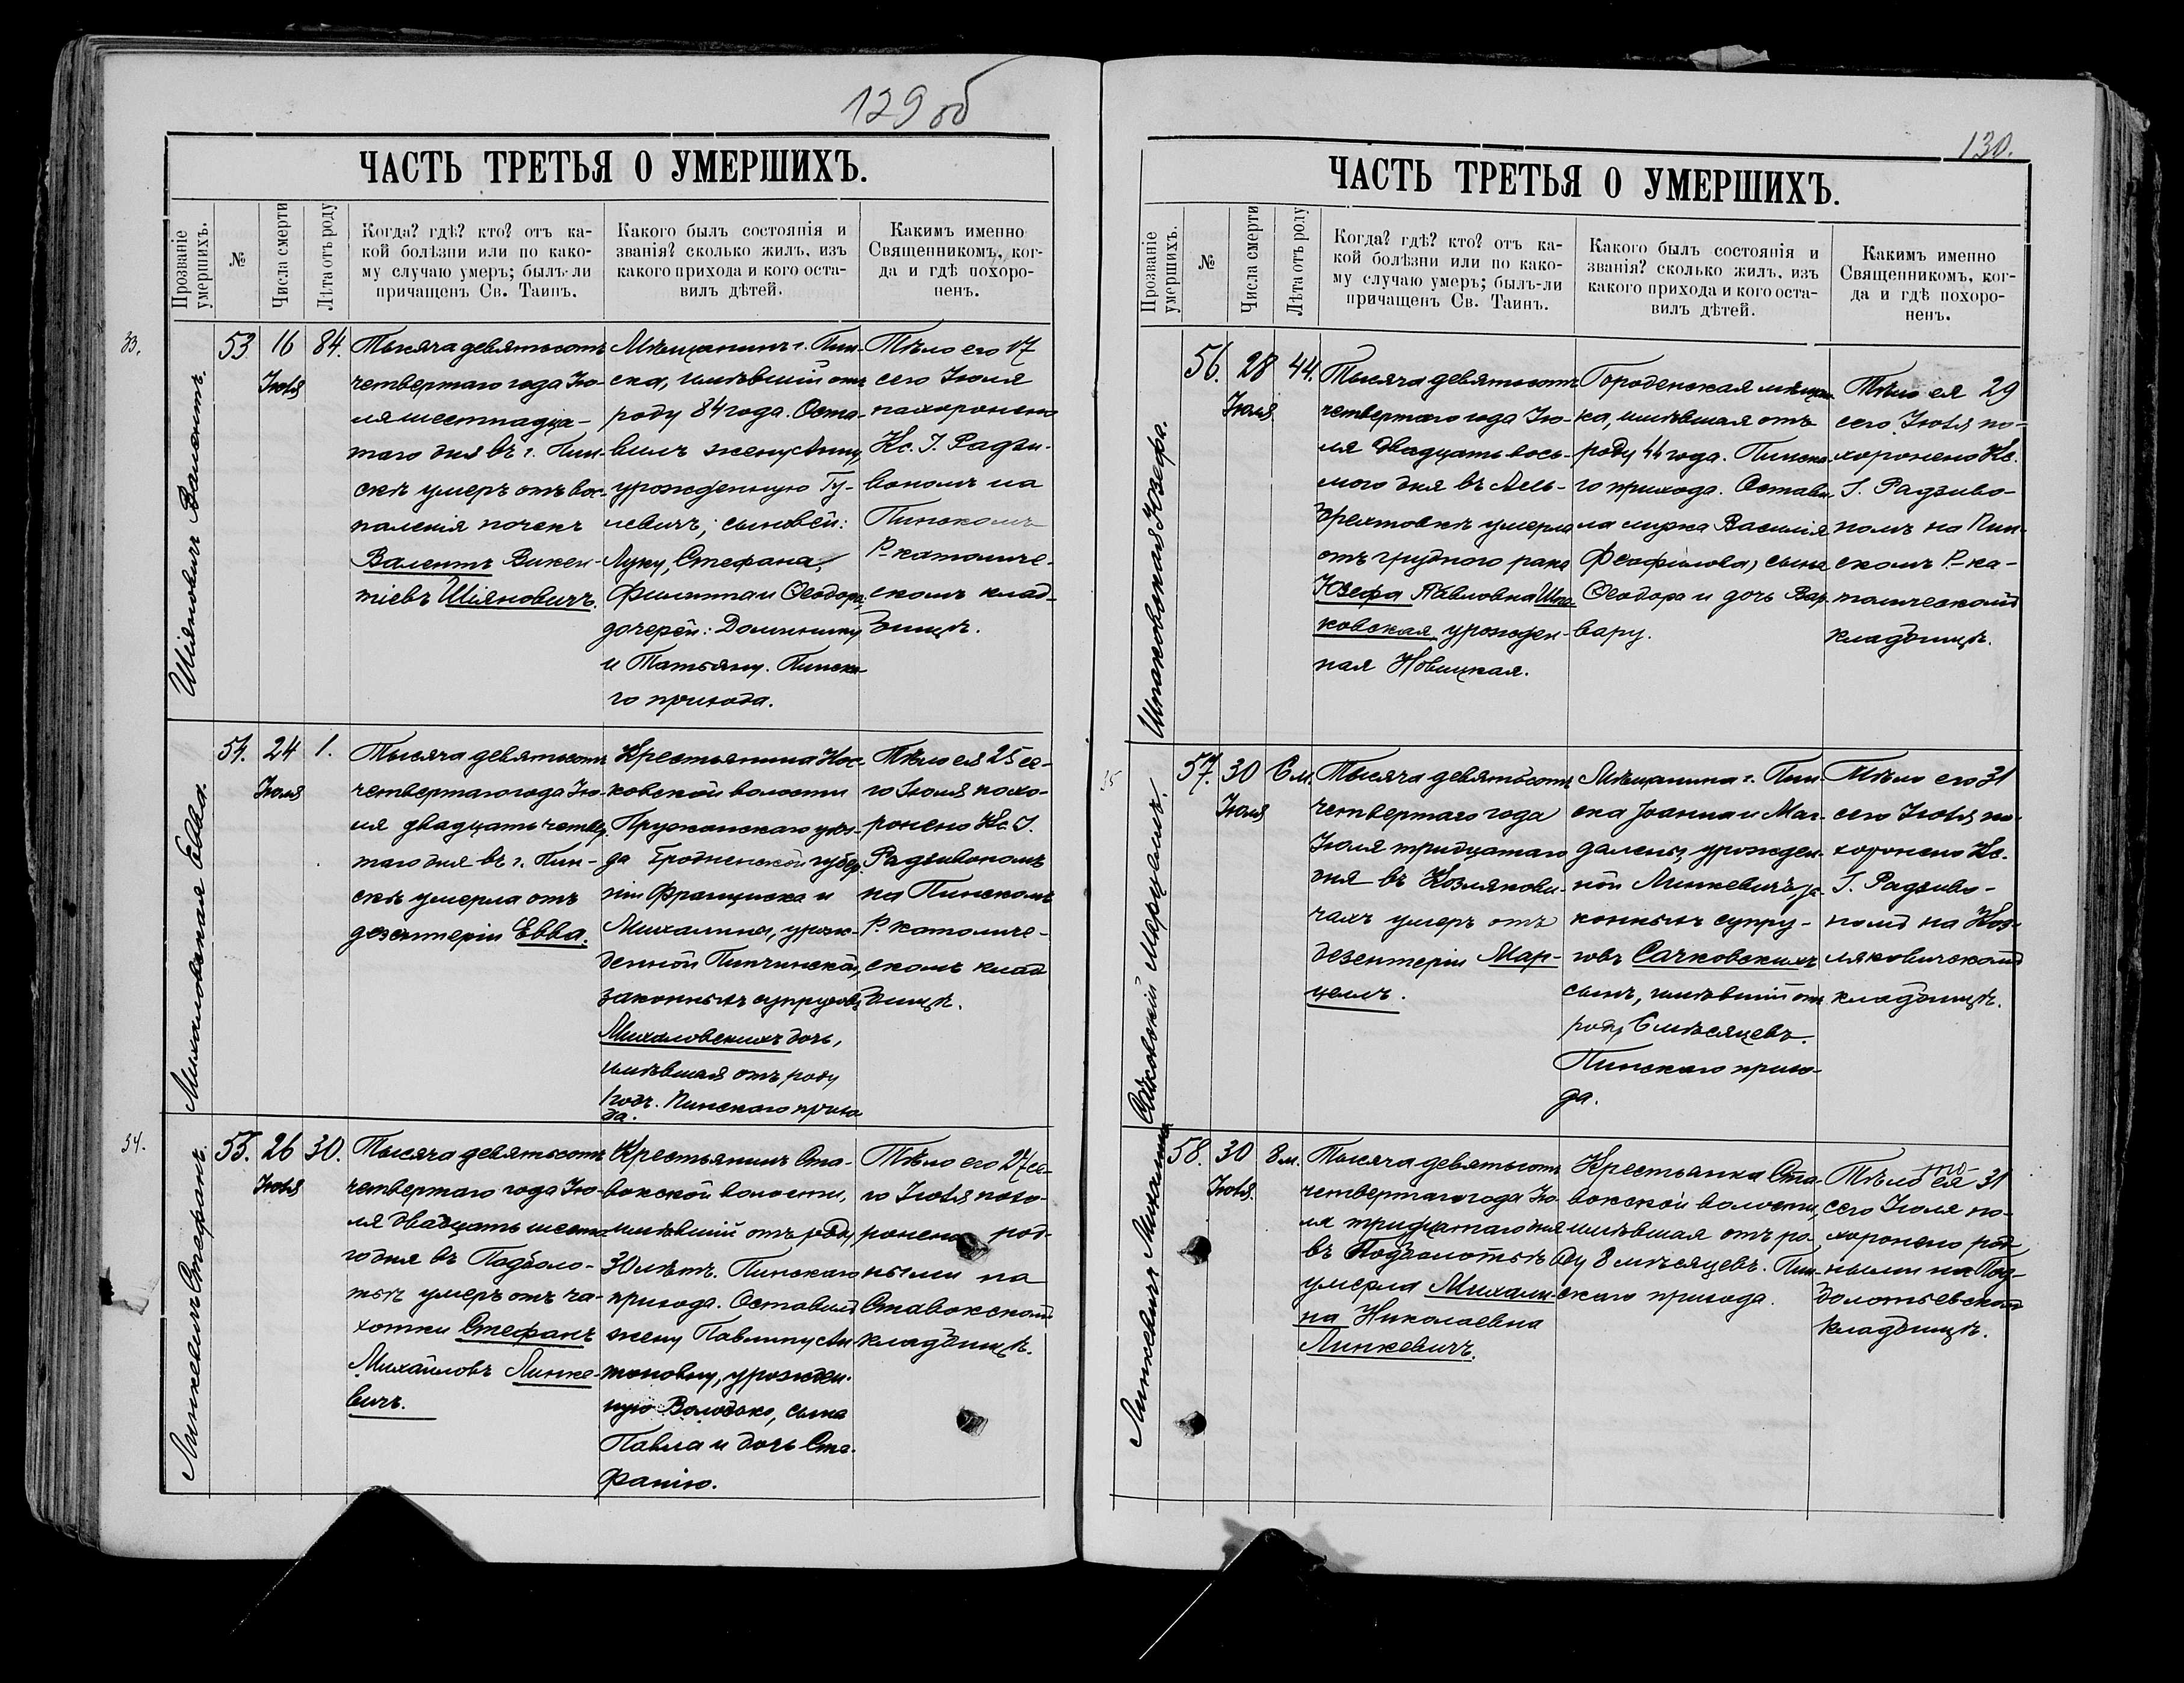 129 об
ЧАСТЬ ТРЕТЬЯ О УМЕРШИХЪ.
Прозваніе умершихъ.
№
Числа смерти
Лѣта отъ роду
Когда? гдѣ? кто? отъ ка-
кой болѣзни или по како-
му случаю умеръ; былъ-ли
причащенъ Св. Таинъ.
Какого былъ состоянія и
званія? сколько жилъ, изъ
какого прихода и кого оста-
вилъ дѣтей.
Какимъ именно
Священникомъ, ког-
да и гдѣ похоро-
ненъ.
33.
Шіяновичъ Валентъ.
53
16
Іюля
84.
Тысяча девятьсотъ
четвертаго года Ію-
ля шестнадца-
таго дня въ г. Пин-
скѣ умеръ отъ вос-
паленія почекъ
Валентъ Викен-
тіевъ Шіяновичъ.
Мѣщанинъ г. Пин-
ска, имѣвшій отъ
роду 84 года. Оста-
вилъ жену Анну,
урожденную Гу-
левичъ, сыновей:
Луку, Стефана,
Филиппа и Ѳеодора,
дочерей: Доминику
и Татьяну. Пинска-
го прихода.
Тѣло его 17
сего Іюля
похоронено
Кс. І. Радзи-
вономъ на
Пинскомъ
Р.-католиче-
скомъ клад-
бищѣ.
Михаловская Евва.
54.
24
Іюля
1.
Тысяча девятьсотъ
четвертаго года Ію-
ля двадцать четвер-
таго дня въ г. Пин-
скѣ умерла отъ
дезентеріи Евва.
Крестьянина Нос-
ковской волости
Пружанскаго уѣз-
да Гродненской губер-
ніи Франциска и
Михалины, урож-
денной Пинчинской,
законныхъ супруговъ
Михаловскихъ дочь,
имѣвшая отъ роду
1 годъ. Пинского прихо
да.
Тѣло ея 25 се-
го Іюля похо-
ронено Кс. І.
Радзивономъ
на Пинскомъ
Р. католиче-
скомъ клад-
бищѣ.
34.
Линкевичъ Стефанъ.
55.
26
Іюля
30.
Тысяча девятьсотъ
четвертаго года Ію-
ля двадцать шеста-
го дня въ Подболо-
тьѣ умеръ отъ ча-
хотки Стефанъ
Михайловъ Линке-
вичъ.
Крестьянинъ Ста-
вокской волости,
имѣвшій отъ роду
30 лѣтъ. Пинскаго
прихода. Оставилъ
жену Павлину Ан
тоновну, урожден-
ную Володько, сына
Павла и дочь Сте-
фанію.
Тѣло его 27 се-
го Іюля похо-
ронено род-
ными на
Ставокскомъ
кладбищѣ.
130.
ЧАСТЬ ТРЕТЬЯ О УМЕРШИХЪ.
Прозваніе умершихъ.
№
Числа смерти
Лѣта отъ роду
Когда? гдѣ? кто? отъ ка-
кой болѣзни или по како-
му случаю умеръ; былъ-ли
причащенъ Св. Таинъ.
Какого былъ состоянія и
званія? сколько жилъ, изъ
какого прихода и кого оста-
вилъ дѣтей.
Какимъ именно
Священникомъ, ког-
да и гдѣ похоро-
ненъ.
Шпаковская Юзефа.
56.
28
Іюля
44.
Тысяча девятьсотъ
четвертаго года Ію-
ля двадцать вось-
мого дня въ Аль-
брехтовкѣ умерла
отъ груднаго рака
Юзефа Павловна Шпа-
ковская урожден-
ная Новицкая.
Городенская мѣщан-
ка, имѣвшая отъ
роду 44 года. Пинска-
го прихода. Остави-
ла мужа Василія
Феофилова, сына
Ѳеодора и дочь Вар-
вару.
Тѣло ея 29
сего Іюля по-
хоронено Кс.
І. Радзиво-
номъ на Пин-
скомъ Р.-ка-
толическомъ
кладбищѣ.
35
Сачковскій Марцелъ.
57.
30
Іюля
6 м.
Тысяча девятьсотъ
четвертаго года
Іюля тридцатаго
дня въ Козлякови-
чахъ умеръ отъ
дезентеріи Мар-
целъ.
Мѣщанина г. Пин-
ска Іоанна и Маг-
далены, урожден-
ной Линкевичъ, за-
конныхъ супру-
говъ Сачковскихъ
сынъ, имѣвшій отъ
роду 6 мѣсяцевъ.
Пинскаго прихо-
да.
Тѣло его 31
сего Іюля по-
хоронено Кс.
І. Радзиво-
номъ на Коз-
ляковичскомъ
кладбищѣ.
Линкевичъ Михалина
58.
30
Іюля.
8 м.
Тысяча девятьсотъ
четвертаго года Ію-
ля тридцатаго дня
въ Подболотьѣ
умерла Михали-
на Николаевна
Линкевичъ.
Крестьянка Ста-
вокской волости,
имѣвшая отъ ро-
ду 8 мѣсяцевъ. Пин-
скаго прихода.
Тѣло ея 31
сего Іюля по-
хоронено род-
ными на Под-
болотьевскомъ
кладбищѣ.